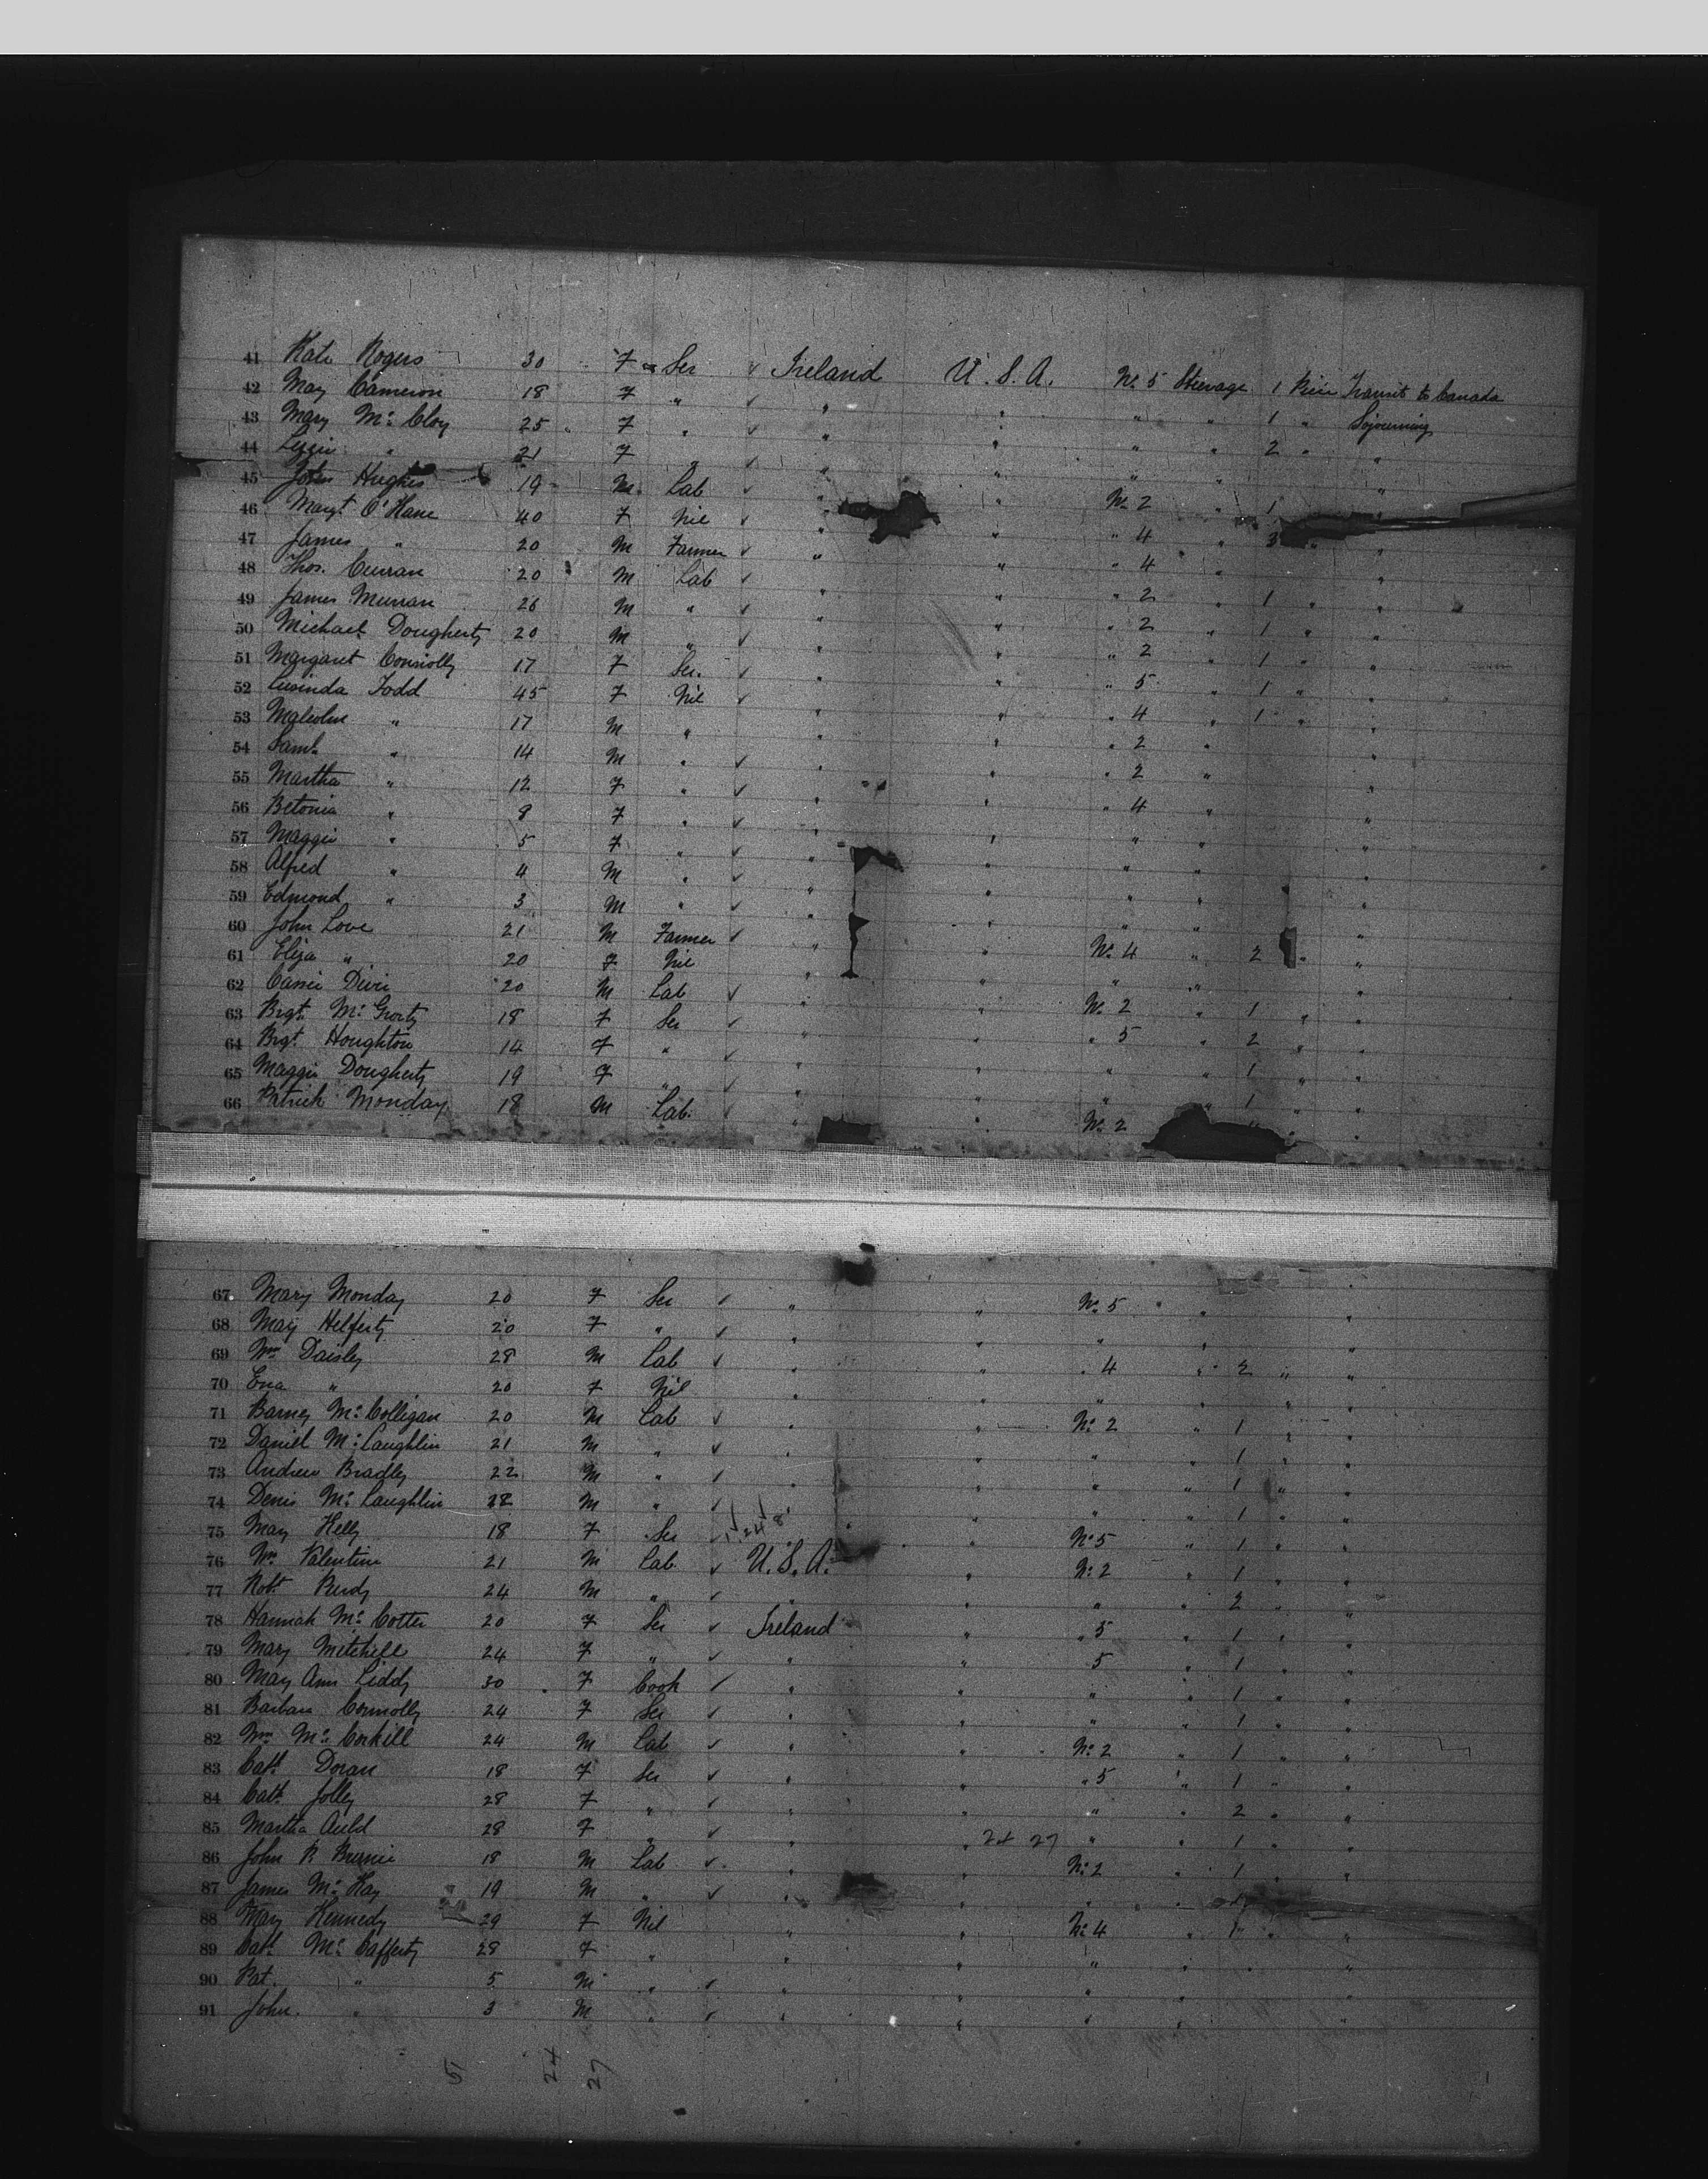 41 Kate Rogers 30 F Ser ✓ Ireland U.S.A. No. 5 Steerage 1 Piece Transit to Canada
42 May Cameron 18 F " ✓ " " " " 1 " Sojourning
43 Mary McCloy 25 F " ✓ " " " " 2 " "
44 Lizzie " 21 F " ✓ " " " " "
45 John Hughes 19 M Lab ✓ " " No. 2 " 1 "
46 Margt. O'Kane 40 F Nil ✓ " " 4 " 3 " "
47 James " 20 M Farmer ✓ " " " 4 " "
48 Thos. Curran 20 M Lab ✓ " " " 2 " 1 " "
49 James Murran 26 M " ✓ " " " 2 " 1 " "
50 Michael Dougherty 20 M " ✓ " " " 2 " 1 " "
51 Margaret Connolly 17 F Ser. ✓ " " " 5 " 1 "
52 Lucinda Todd 45 F Nil ✓ " " " 4 " 1 "
53 Malcolm " 17 M " " " " 2 " "
54 Saml. " 14 M " ✓ " " " 2 " "
55 Martha " 12 F " ✓ " " " 4 " "
56 " 8 F " ✓ " " " " "
57 Maggie " 5 F " ✓ " " " " "
58 Alfred " 4 M " ✓ " " " " "
59 Edmond " 3 M " ✓ " " " " "
60 John Love 21 M Farmer ✓ " " No. 4 " 2 " "
61 Eliza " 20 F Nil " " " " "
62 20 M Lab ✓ " " No. 2 " 1 " "
63 Brgt. 18 F Ser ✓ " " " 5 " 2 " "
64 Brgt. Houghton 14 F " ✓ " " " " 1 " "
65 Maggie Dougherty 19 F " ✓ " " " " 1 " "
66 Patrick Monday 18 M Lab. ✓ " " No. 2 " "
67 Mary Monday 20 F Ser ✓ " " No. 5 " "
68 May Helferty 20 F " ✓ " " " " "
69 Wm Daisley 28 M Lab ✓ " " " 4 " 2 " "
70 Ena " 20 F Nil " " " " "
71 Barney McColligan 20 M Lab ✓ " " No. 2 " 1 " "
72 Daniel McLaughlin 21 M " ✓ " " " " 1 " "
73 Andrew Bradley 22 M " ✓ " " " 1 " "
74 Denis McLaughlin 28 M " ✓ " " " 1 " "
75 May Kelly 18 F Ser ✓ " " No. 5 " 1 " "
76 Wm Valentine 21 M Lab. ✓ U.S.A. " No. 2 " 1 " "
77 Robt. Purdy 24 M " ✓ " " " " 2 " "
78 Hannah McCotter 20 F Ser ✓ Ireland " " 5 " 1 " "
79 Mary Mitchell 24 F " ✓ " " 5 " 1 " "
80 May Ann Liddy 30 F Cook ✓ " " " " 1 " "
81 Barbara Connolly 24 F Ser ✓ " " " " 1 " "
82 Wm McCorkill 24 M Lab ✓ " " No. 2 " 1 " "
83 Cath. Doran 18 F Ser ✓ " " " 5 " 1 " "
84 Cath. Jolley 28 F " ✓ " " " " 2 " "
85 Martha Auld 28 F " ✓ " " 24 27 " " 1 " "
86 John P. 18 M Lab ✓ " " No. 2 " 1 " "
87 James McKay 19 M " ✓ " " " " "
88 Mary Kennedy 29 F Nil " " No. 4 " 1 " "
89 Cath. McCafferty 28 F " " " " " "
90 Pat. " 5 M " ✓ " " " "
91 John. " 3 M " ✓ " " " " "
5 24 27